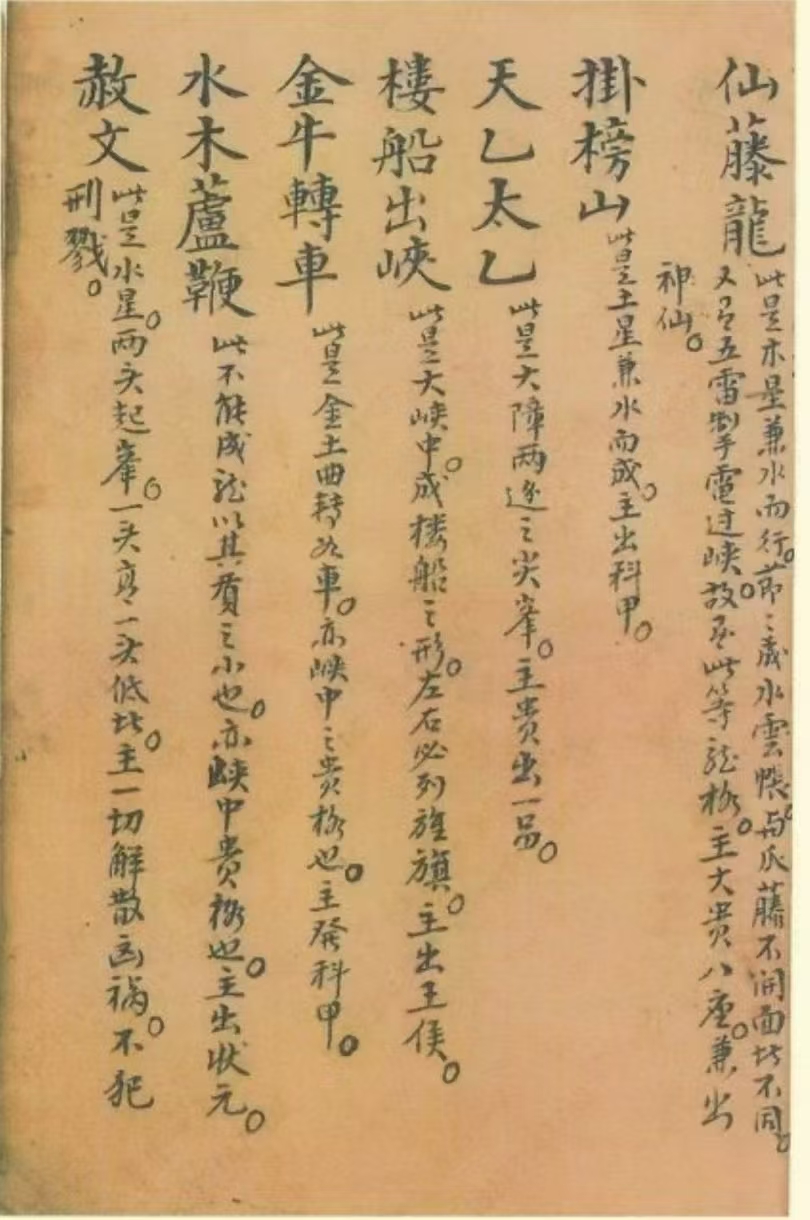 仙藤龍此是木星兼水而行。節〻成水雲帳。與瓜藤不開面者不同。
又名五雷掣手電过峡。故原此等龍格。主大贵八座。兼出
神仙。
掛榜山此是土星兼水而成。主出科甲。
天乙太乙此是大障两边之尖峯。主贵出一品。
樓船出峽此是大峡中。成楼船之形。左右必列旌旗。主出王侯。
金牛轉車此是金土曲转如車。亦峡中之贵格也。主發科甲。
水木蘆鞭此不能成龍以其質之小也。亦峡中贵格也。主出状元。
赦文此是水星。两头起峯。一头高一头低者。主一切解散凶禍。不犯
刑戮。